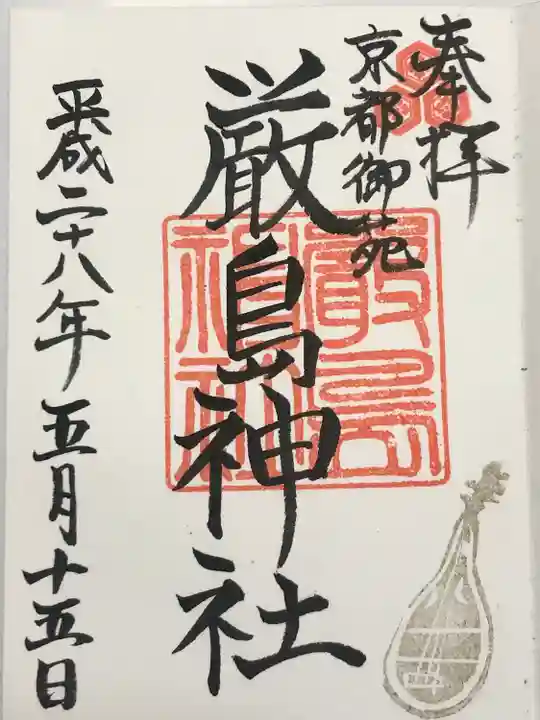 奉拝
京都御苑
厳島神社
平成二十八年五月十五日
嚴島神社